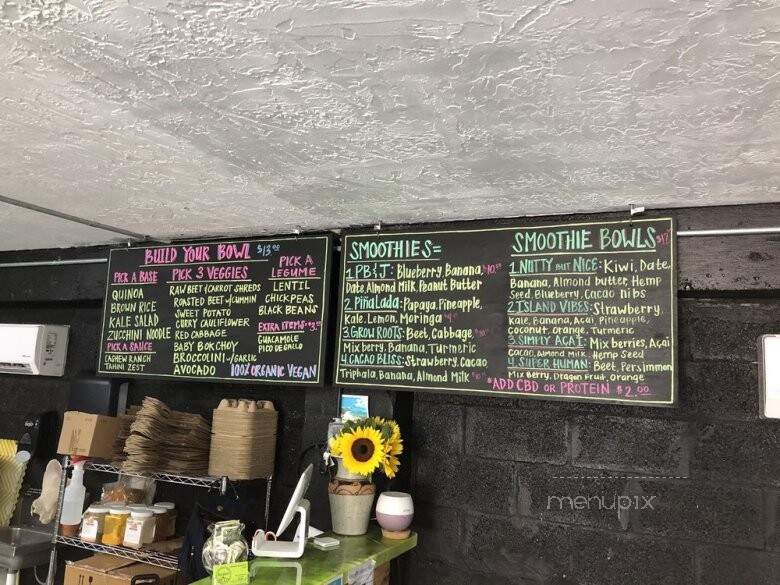 BUILD YOUR BOWL $13.00
PICK A BASE
QUINOA
BROWN RICE
KALE SALAD
ZUCCHINI NOODLE
PICK A SAUCE
CASHEW RANCH
TAHINI ZEST
PICK 3 VEGGIES
RAW BEET/CARROT SHREDS
ROASTED BEET W/CUMMIN
SWEET POTATO
CURRY CAULIFLOWER
RED CABBAGE
BABY BOK CHOY
BROCCOLINI/GARLIC
AVOCADO
PICK A
LEGUME
LENTIL
CHICKPEAS
BLACK BEANS
EXTRA ITEMS
GUACAMOLE
PICO DE GALLO
100% ORGANIC VEGAN
SMOOTHIES=
1.PB&J: Blueberry, Banana,
Date, Almond Milk, Peanut Butter
2.PiñaLada: Papaya, Pineapple,
Kale, Lemon, Moringa
3.GROW ROOTS: Beet, Cabbage,
Mix berry, Banana, Turmeric
4.CACAO BLISS: Strawberry, Cacao
Triphala, Banana, Almond Milk
SMOOTHIE BOWLS
1.NUTTY BUT NICE: Kiwi, Date,
Banana, Almond butter, Hemp
Seed, Blueberry, Cacao nibs
2.ISLAND VIBES: Strawberry,
Kale, Banana, Açai, Pineapple,
coconut, orange, Turmeric
3.SIMPLY AÇAI: Mix berries, Açai
Cacao, Almond Milk, Hemp Seed
4.SUPER HUMAN: Beet, Persimmon
Mix Berry, Dragon Fruit, Orange
*ADD CBD OR PROTEIN $2.00
menupix